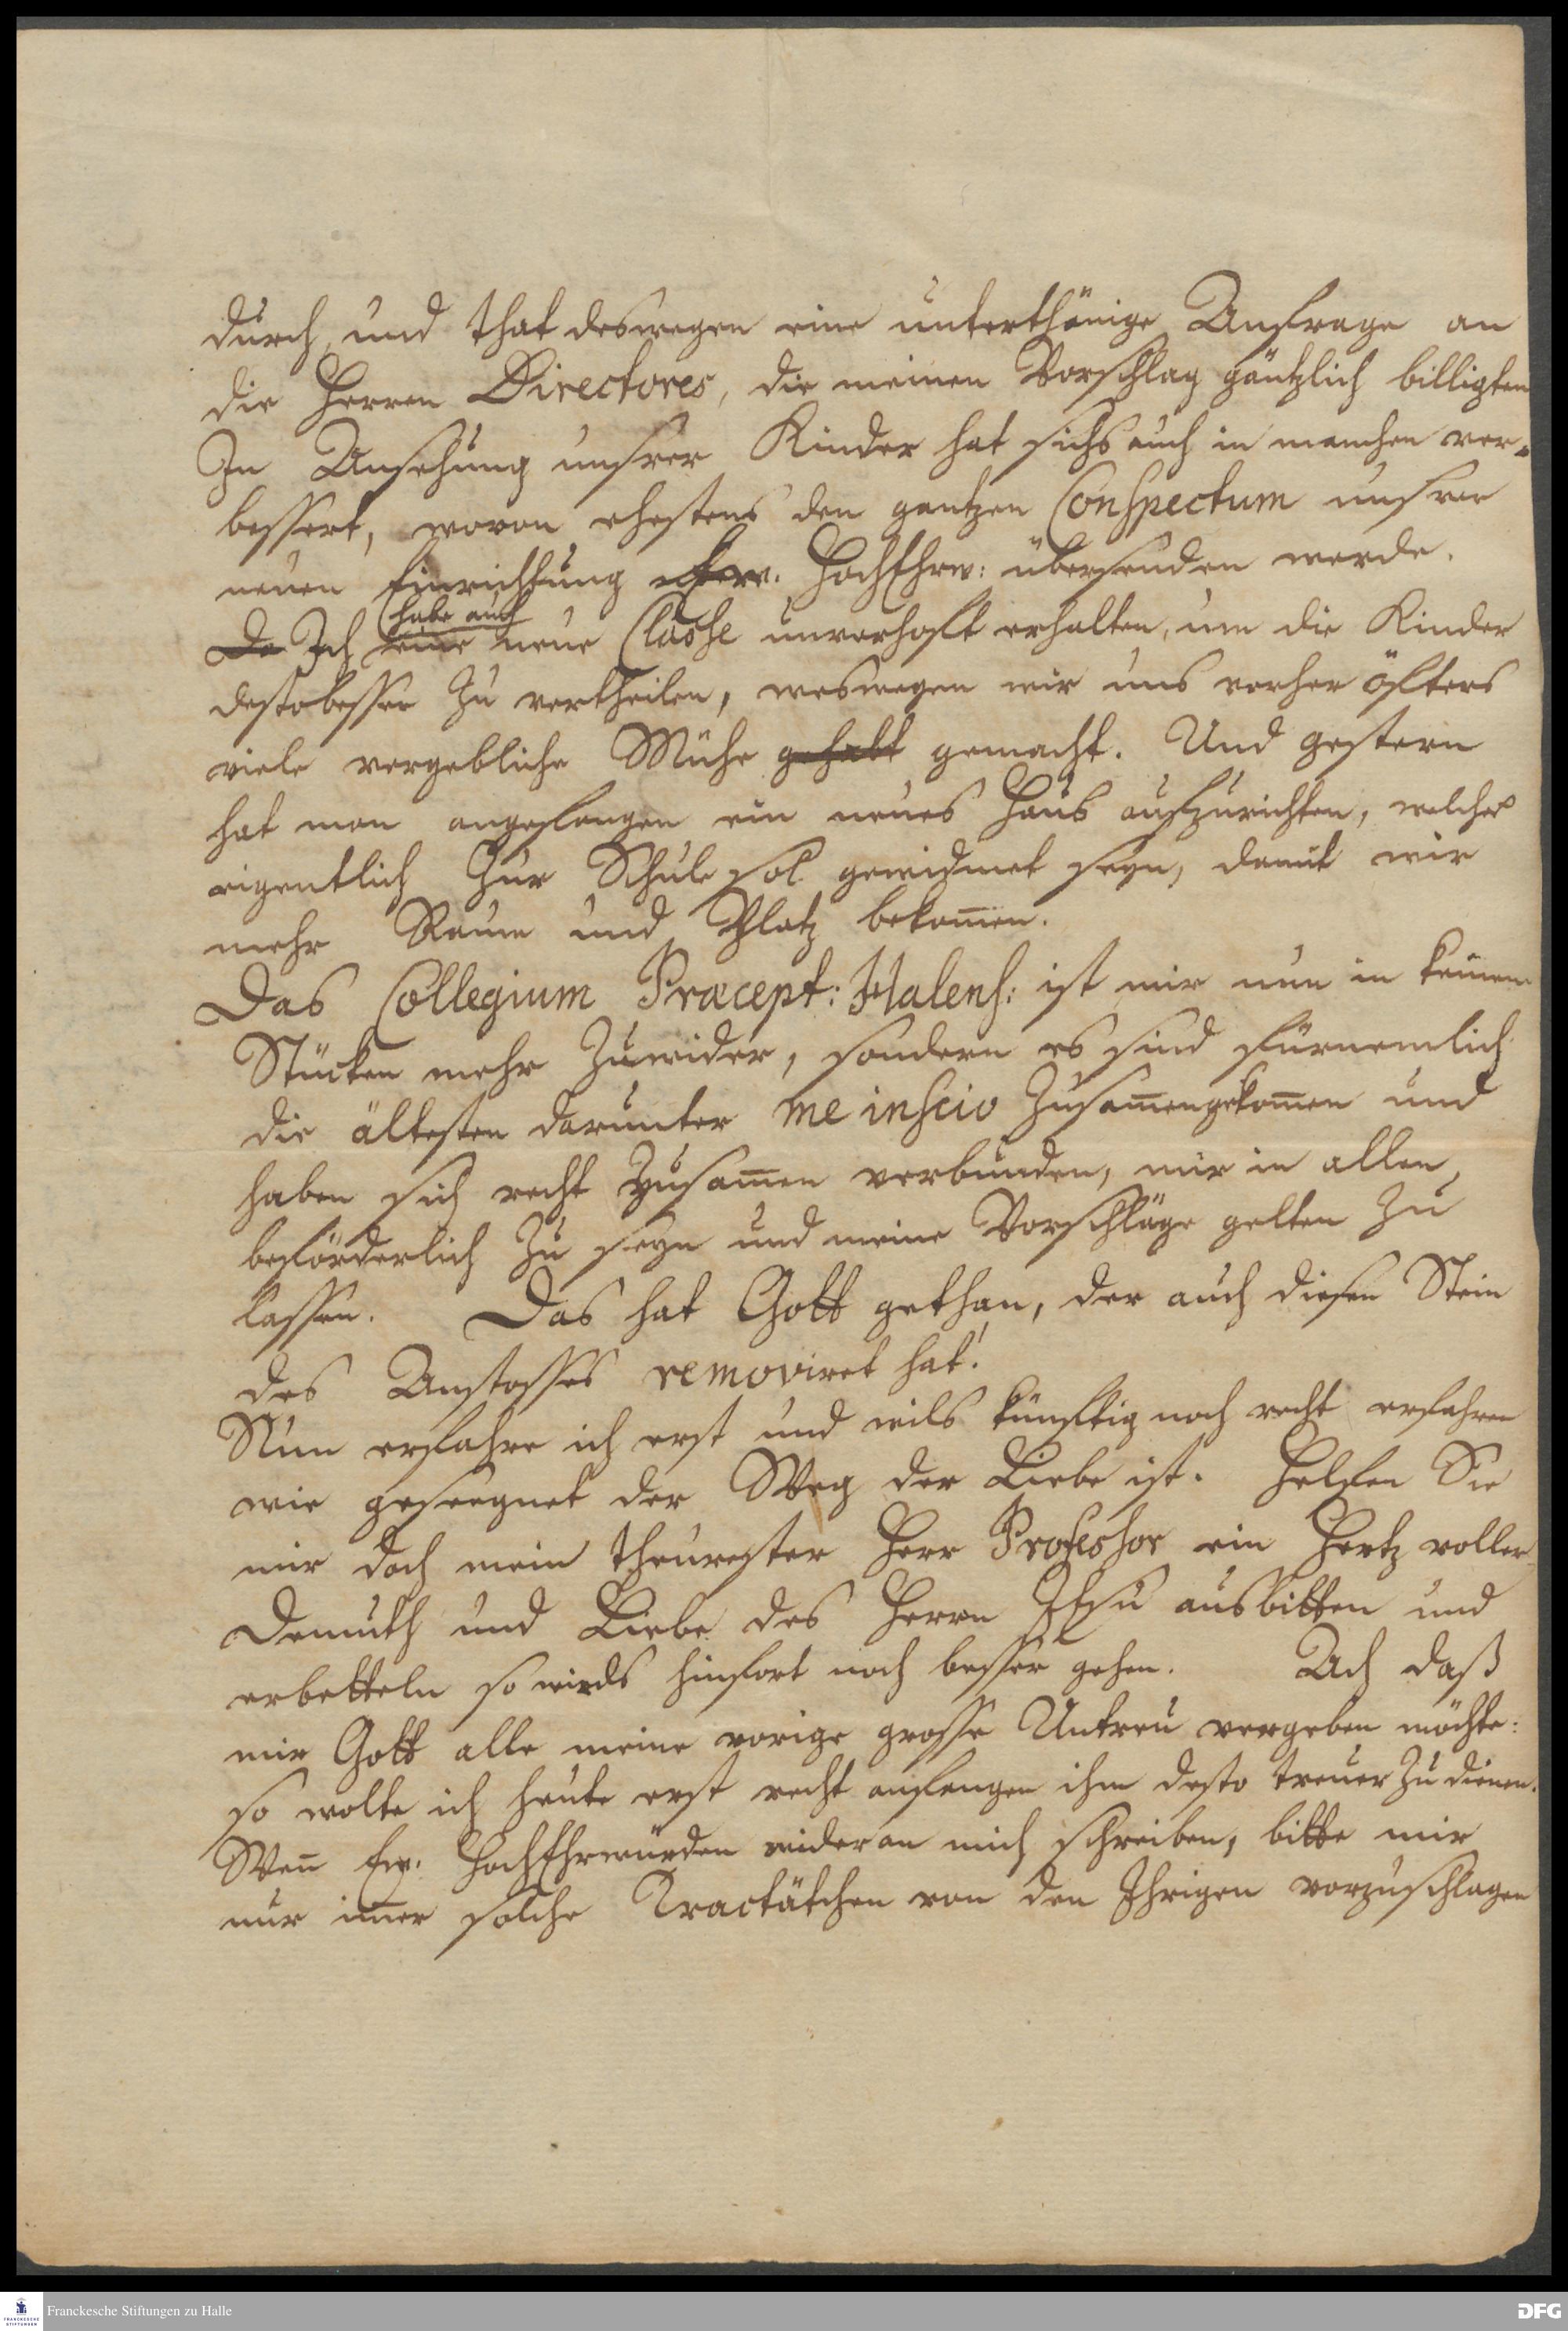 durch, und that deswegen eine unterthänige Anfrage an
die Herren Directores, die meinen Vorschlag gäntzlich billigten
In Ansehung unsrer Kinder hat sichs auch in manchen ver-
bessert, wovon ehestens den gantzen Conspectum unsrer
neuen Einrichtung HochEhrw: übersenden werde.
habe auch
Da Ich eine neue Classe unverhoft erhalten, um die Kinder
destobesser zu vertheilen, weswegen wir uns vorher öfters
viele vergebliche Mühe gehabt gemacht. Und gestern
hat man angefangen ein neues Haus aufzurichten, welches
eigentlich zur Schule sol gewidmet seyn, damit wir
mehr Raum und Platz bekom̅en.
Das Collegium Præcept: Halens: ist mir nun in keinem
Stücken mehr zuwider, sondern es sind fürnemlich
die ältesten darunter me inscio zusam̅engekom̅en und
haben sich recht zusam̅en verbunden, mir in allen
beförderlich zu seyn und meine Vorschläge gelten zu
lassen. Das hat Gott gethan, der auch diesen Stein
des Anstosses removiret hat!
Nun erfahre ich erst und wils künftig noch recht erfahren
wie geseegnet der Weg der Liebe ist. Helfen Sie
mir doch mein theurester Herr Professor ein Hertz voller
Demuth und Liebe des Herrn JEsu ausbitten und
erbetteln so wirds hinfort noch besser gehen. Ach daß
mir Gott alle meine vorige grosse Untreu vergeben möchte:
so wolte ich heute erst recht anfangen ihm desto treuer zu dienen.
Wen̅ Ew. HochEhrwürden wider an mich schreiben, bitte mir
nur im̅er solche Tractätchen von den Ihrigen vorzuschlagen
Franckesche Stiftungen zu Halle
FRANCKESCHE STIFTUNGEN
DFG